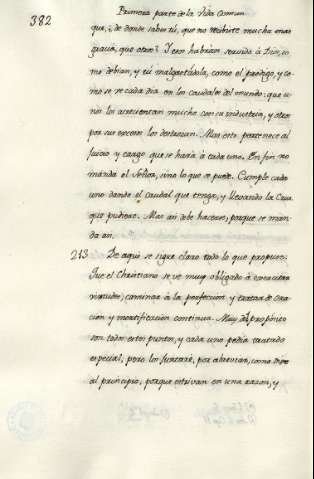 382
Primera parte de la Vida Comun
que, ¿ de donde sabes tú, que no recibiste mucha mas
gracia, que otros? Y esos habrian servido á Dios, co-
mo debian, y tú malgastádola, como el prodigo, y co-
mo se ve cada dia en los caudales del mundo: que u-
nos los acrecientan mucho con su industria, y otros
por sus excesos los destruyen. Mas esto pertenece al
Juicio y cargo que se haria á cada uno. En fin no
manda el Señor, sino lo que se puede. Cumple cada
uno dando el caudal que tenga, y llevando la Cruz
que pudiere. Mas asi debe hacerse, porque se man-
da asi.
213 De aqui se sigue claro todo lo que propuse:
Que el Christiano se ve muy obligado á exercitar
virtudes, caminar á la perfeccion, y tratar de Ora-
cion y mortificacion continua. Muy del proposito
son todos estos puntos, y cada uno pedia tratado
especial; pero los juntaré, por abreviar, como dixe
al principio; porque estrivan en una razon, y